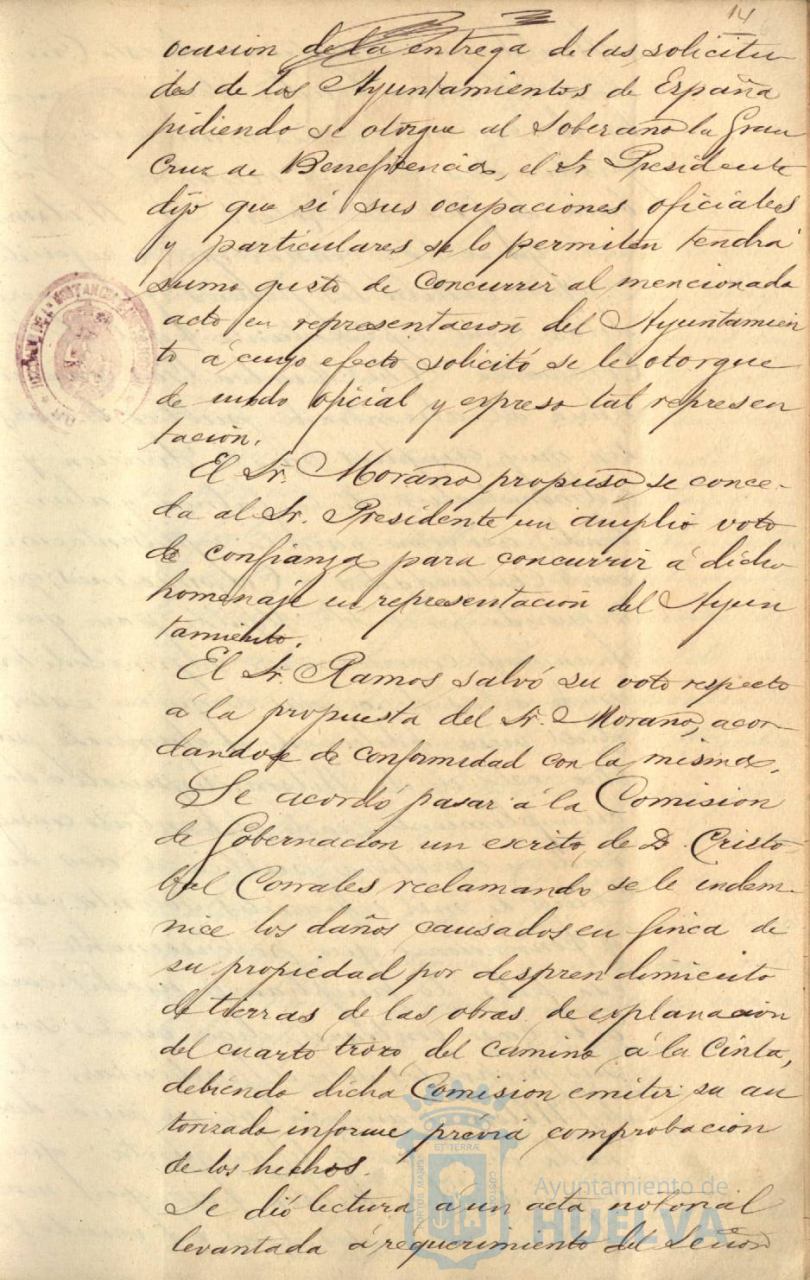 14
ocasion de la entrega de las solicitu
des de los Ayuntamientos de España
pidiendo se otorgue al Soberano la Gran
Cruz de Beneficencia, el Sr Presidente
dijo que si sus ocupaciones oficiales
y particulares se lo permiten tendrá
sumo gusto de concurrir al mencionado
acto en representacion del Ayuntamien
to á cuyo efecto solicitó se le otorgue
de modo oficial y expreso tal represen
tación.
El Sr. Morano propuso, se conce-
da al Sr. Presidente un amplio voto
de confianza para concurrir á dicho
homenaje en representación del Ayun
tamiento.
El Sr. Ramos salvó su voto respecto
á la propuesta del Sr. Morano, acor-
dandose de conformidad con la misma.
Se acordó pasar á la Comision
de Gobernacion un escrito, de D. Cristo
bal Corrales reclamando se le indem-
nice los daños causados en finca de
su propiedad por desprendimiento
de tierras de las obras de explanacion
del cuarto trozo del camino á la Cinta,
debiendo dicha Comision emitir su au
torizado informe prévia comprobacion
de los hechos.
Se dió lectura á un acta notarial
levantada á requerimiento del Señor
PORTUS MARIS
ET TERRÆ
CUSTODIA
Ayuntamiento de
HUELVA